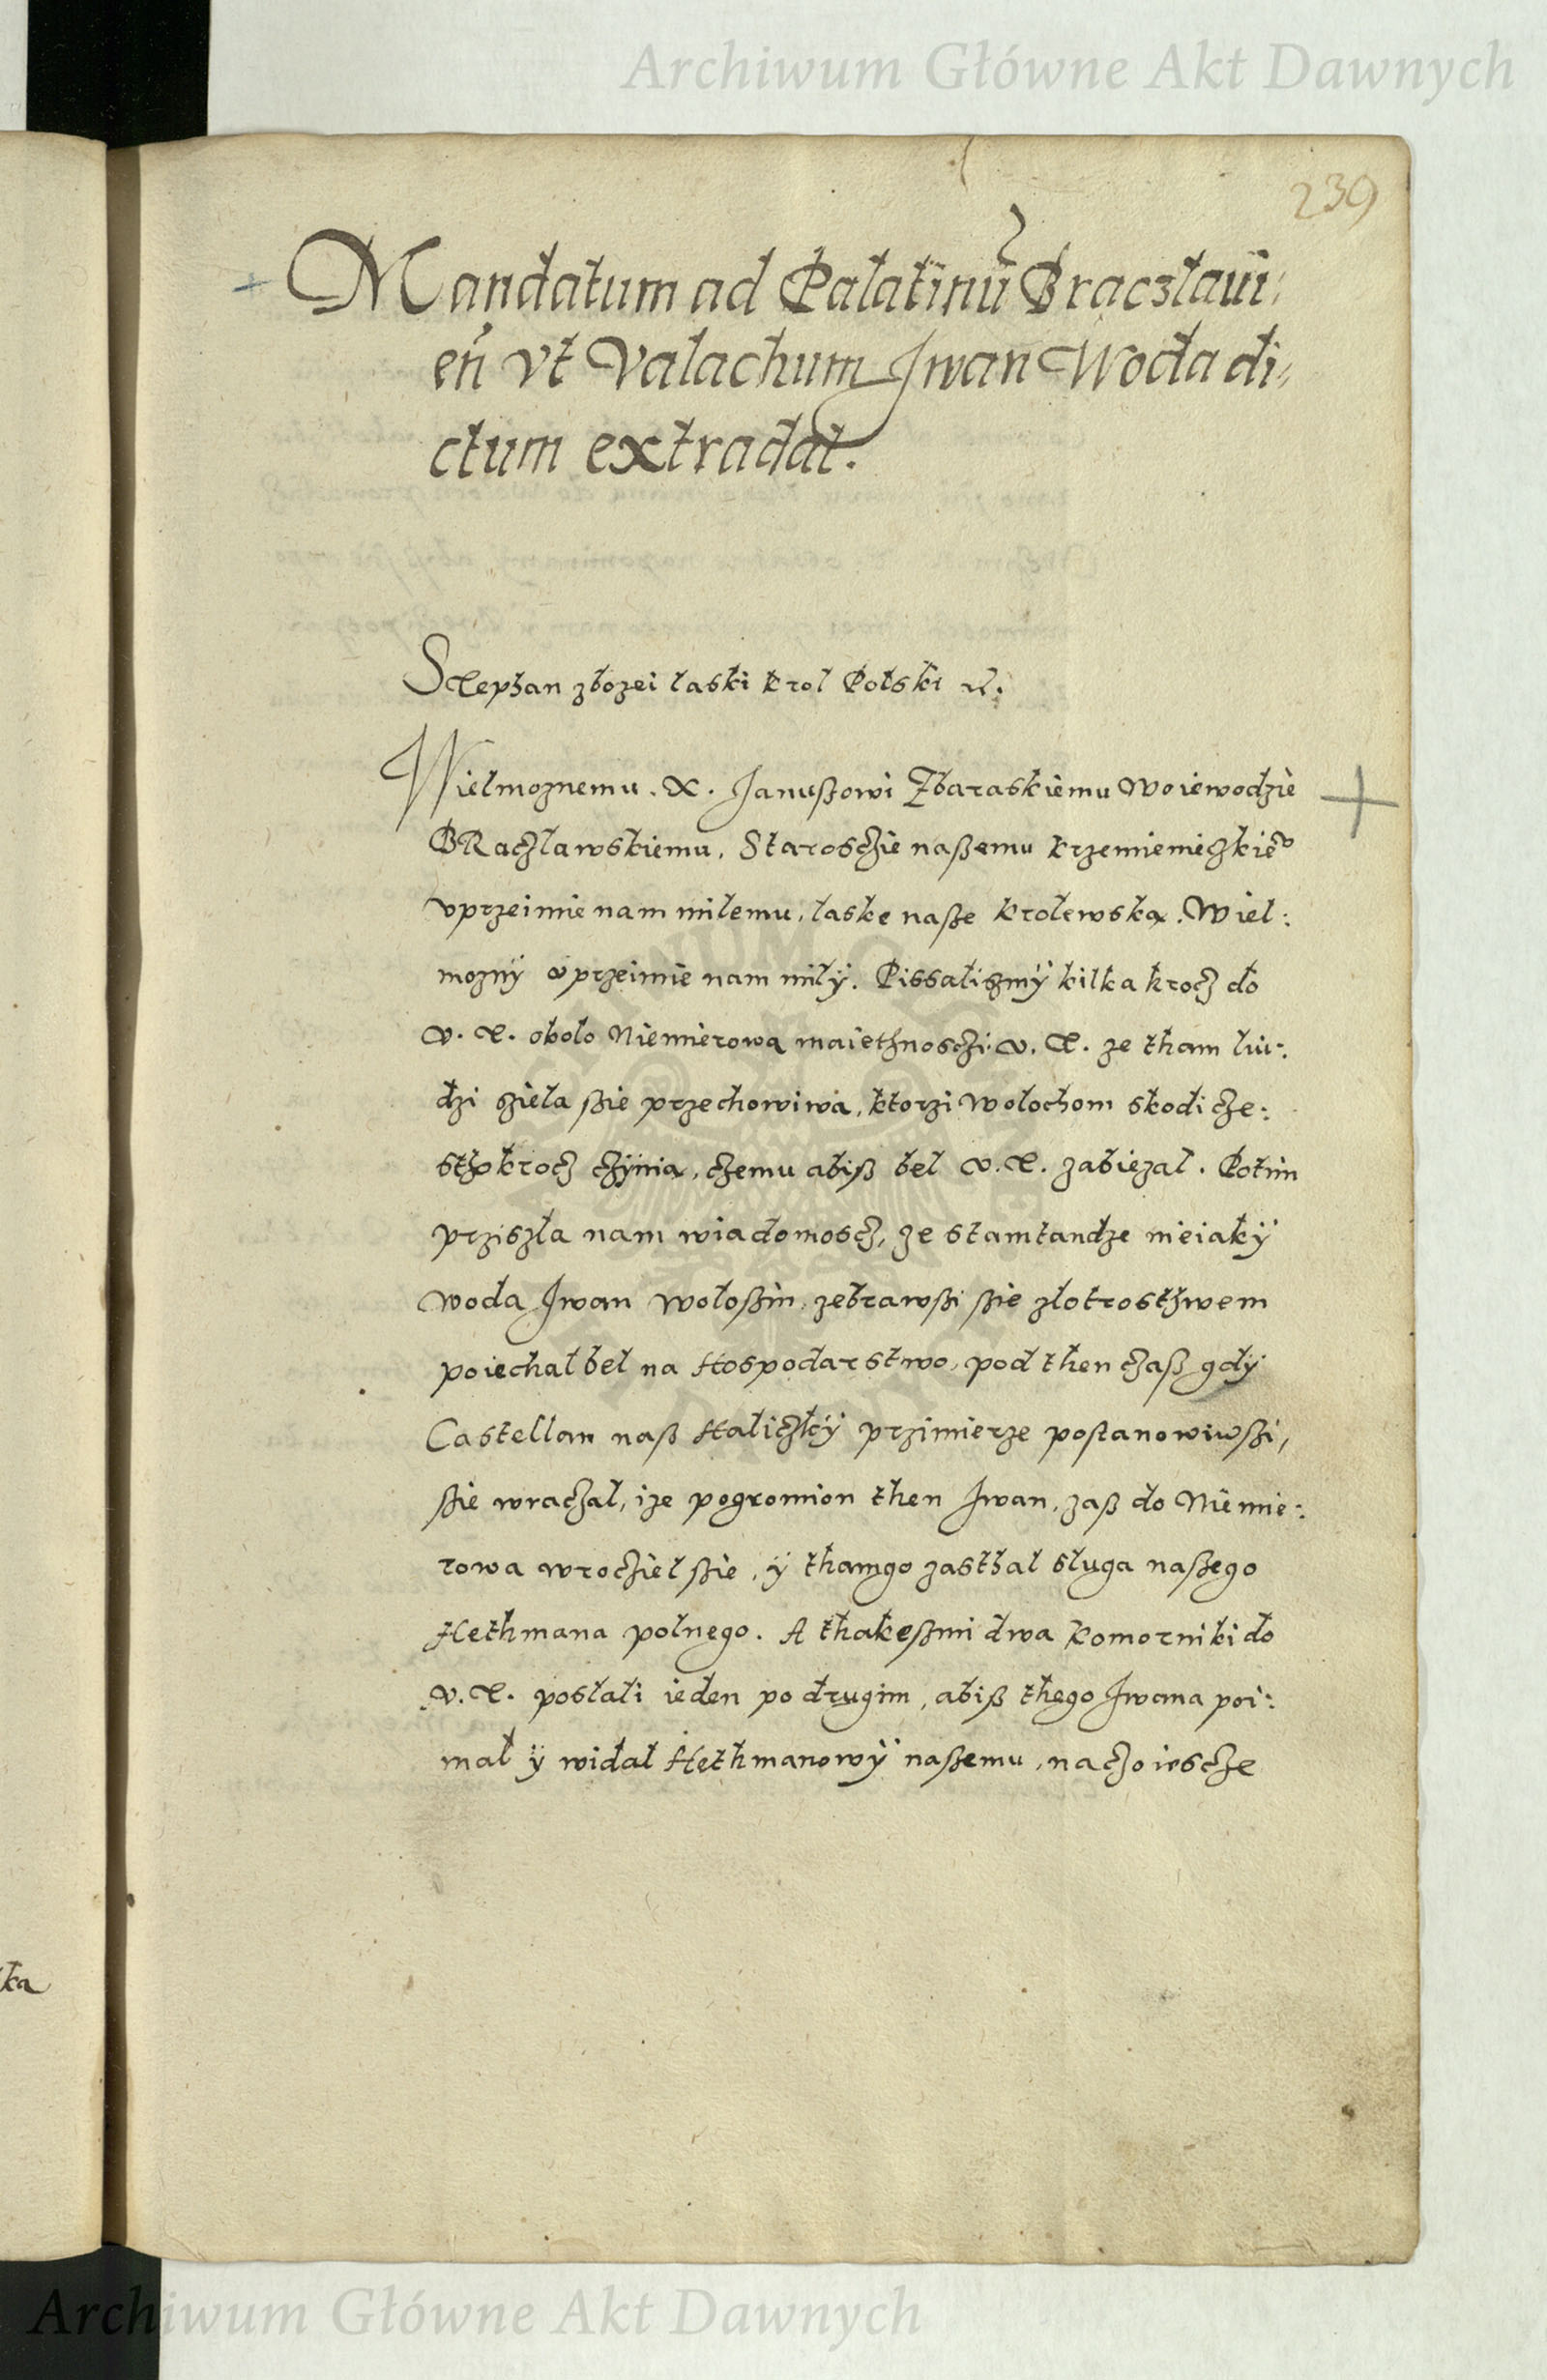 Archiwum Główne Akt Dawnych
239
Mandatum ad Palatinū Braczlaui:
eń vt Valachum Iwan Woda di:
ctum extradat.
Stephan zbozei laski krol Polski
Wielmoznemu. X. Janußowi Zbaraskiemu Woiewodzie
BRaczlawskiemu, Starosczie naßemu krzemienieczkieo
vprzeimie nam milemu, laske naße krolewską. Wiel:
mozný vprzeimie nam milý. Pissaliszmý kilka krocz do
v. X. okolo Niemierowa maiethnosczi. v. X. ze tham lu:
dzi siela ßie przechowiwa, ktorzi Wolochom skodi cze:
sthokrocz czÿnia, czemu abiß bel v. X. zabiezal. Potim
prziszla nam wiadomoscz, ze stamtandze nieiakÿ
Woda Iwan Woloßin, zebrawßi ßie zlotrosthwem
poiechal bel na Hospodarstwo, pod then czaß gdÿ
Castellan naß Haliczkÿ przimierze postanowiwßi,
ßie wraczal, ize pogromion then Iwan, zaß do Niemie:
rowa wrocziel ßie, ÿ thamgo zasthal sluga naßego
Hethmana polnego. A thakeßmi dwa komorniki do
v. X. poslali ieden po drugim, abiß thego Iwana poi:
mal ÿ widal Hethmanowÿ naßemu, naczo iescze
ka
Archiwum Główne Akt Dawnych